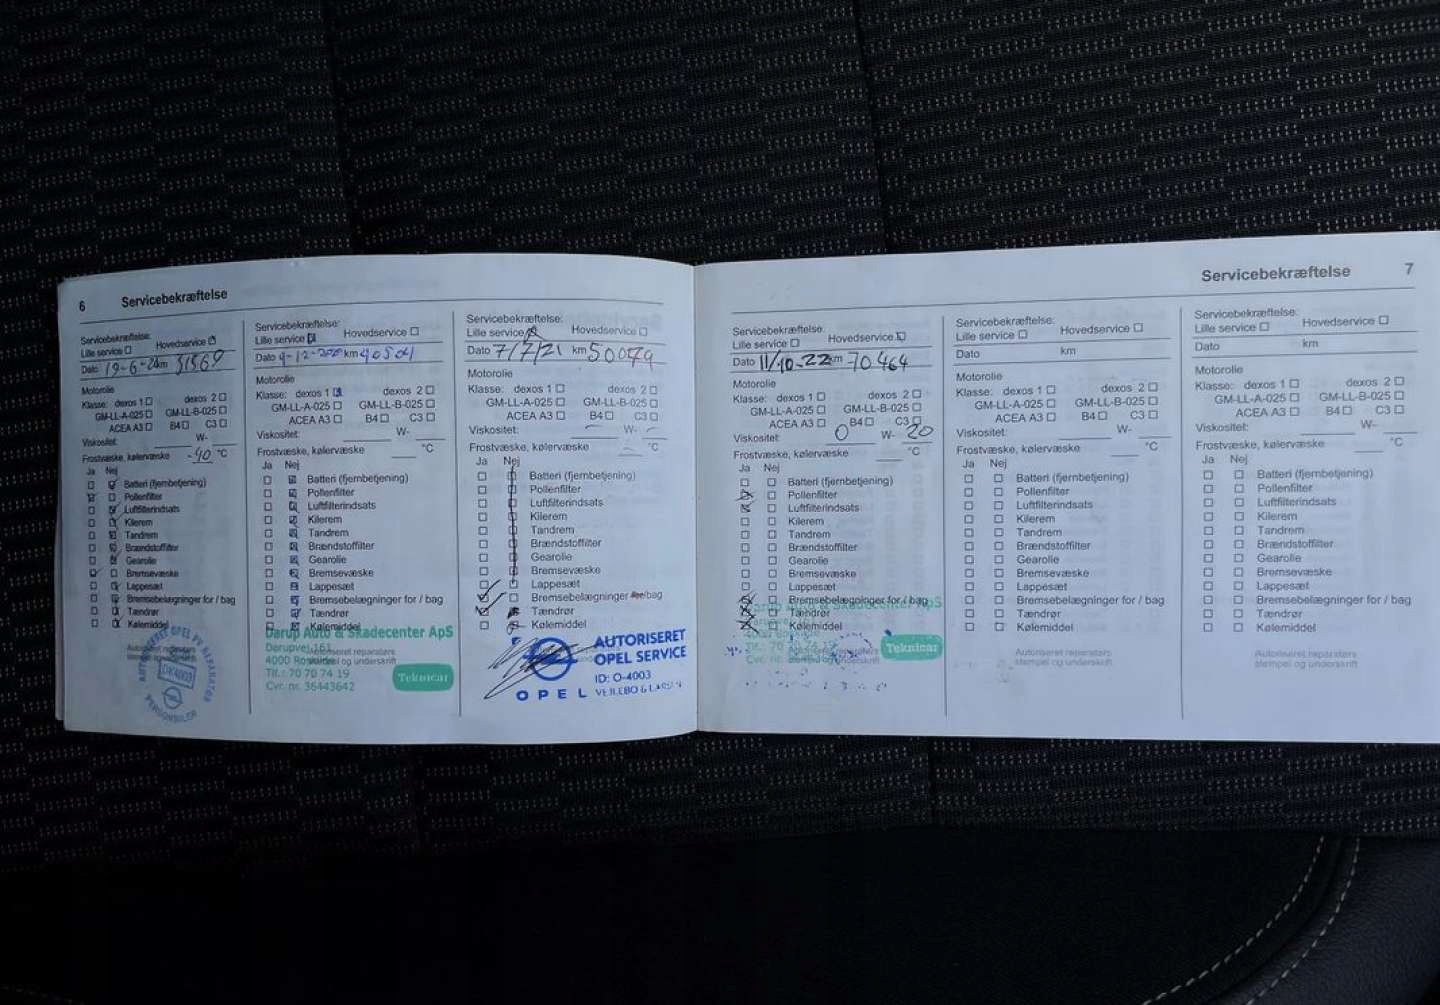 6 Servicebekræftelse
Servicebekræftelse:
Lille service Hovedservice
Dato 19-6-20 km 31569
Motorolie
Klasse: dexos 1 dexos 2
GM-LL-A-025 GM-LL-B-025
ACEA A3 B4 C3
Viskositet: W-
Frostvæske, kølervæske -40 °C
Ja Nej
Batteri (fjernbetjening)
Pollenfilter
Luftfilterindsats
Kilerem
Tandrem
Brændstoffilter
Gearolie
Bremsevæske
Lappesæt
Bremsebelægninger for / bag
Tændrør
Kølemiddel
Autoriseret reparatørs
stempel og underskrift
AUTORISERET OPEL PV REPARATØR
PERSONBILER
Servicebekræftelse:
Lille service Hovedservice
Dato 9-12-2020 km 40504
Motorolie
Klasse: dexos 1 dexos 2
GM-LL-A-025 GM-LL-B-025
ACEA A3 B4 C3
Viskositet: W-
Frostvæske, kølervæske °C
Ja Nej
Batteri (fjernbetjening)
Pollenfilter
Luftfilterindsats
Kilerem
Tandrem
Brændstoffilter
Gearolie
Bremsevæske
Lappesæt
Bremsebelægninger for / bag
Tændrør
Kølemiddel
Darup Auto & Skadecenter ApS
Darupvej 161
Autoriseret reparatørs
4000 Roskilde
stempel og underskrift
Tlf.: 70 70 74 19
Cvr. nr. 36443642
Teknicar
Servicebekræftelse:
Lille service Hovedservice
Dato 7/7/21 km 50079
Motorolie
Klasse: dexos 1 dexos 2
GM-LL-A-025 GM-LL-B-025
ACEA A3 B4 C3
Viskositet: W-
Frostvæske, kølervæske °C
Ja Nej
Batteri (fjernbetjening)
Pollenfilter
Luftfilterindsats
Kilerem
Tandrem
Brændstoffilter
Gearolie
Bremsevæske
Lappesæt
Bremsebelægninger for/bag
Tændrør
Kølemiddel
AUTORISERET
OPEL SERVICE
ID: O-4003
OPEL VEJLEBO & LARSEN
Servicebekræftelse 7
Servicebekræftelse:
Lille service Hovedservice
Dato 11/10-22 km 70464
Motorolie
Klasse: dexos 1 dexos 2
GM-LL-A-025 GM-LL-B-025
ACEA A3 B4 C3
Viskositet: 0 W- 20
Frostvæske, kølervæske °C
Ja Nej
Batteri (fjernbetjening)
Pollenfilter
Luftfilterindsats
Kilerem
Tandrem
Brændstoffilter
Gearolie
Bremsevæske
Lappesæt
Bremsebelægninger for / bag
Tændrør
Kølemiddel
Darup Auto & Skadecenter ApS
4000 Roskilde
Teknicar
Servicebekræftelse:
Lille service Hovedservice
Dato km
Motorolie
Klasse: dexos 1 dexos 2
GM-LL-A-025 GM-LL-B-025
ACEA A3 B4 C3
Viskositet: W-
Frostvæske, kølervæske °C
Ja Nej
Batteri (fjernbetjening)
Pollenfilter
Luftfilterindsats
Kilerem
Tandrem
Brændstoffilter
Gearolie
Bremsevæske
Lappesæt
Bremsebelægninger for / bag
Tændrør
Kølemiddel
Autoriseret reparatørs
stempel og underskrift
Servicebekræftelse:
Lille service Hovedservice
Dato km
Motorolie
Klasse: dexos 1 dexos 2
GM-LL-A-025 GM-LL-B-025
ACEA A3 B4 C3
Viskositet: W-
Frostvæske, kølervæske °C
Ja Nej
Batteri (fjernbetjening)
Pollenfilter
Luftfilterindsats
Kilerem
Tandrem
Brændstoffilter
Gearolie
Bremsevæske
Lappesæt
Bremsebelægninger for / bag
Tændrør
Kølemiddel
Autoriseret reparatørs
stempel og underskrift